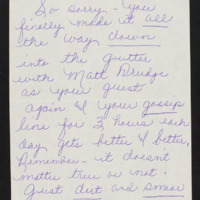 So sorry - you
finally made it all
the way down
into the gutter
with Matt Drudge
as your guest
again & your gossip
line for 3 hours each
day gets better & better.
Remember - it doesn't
matter true or not.
Just dirt and smear